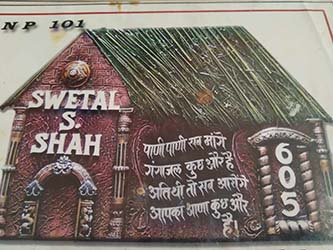 N P 101
SWETAL
S.
SHAH
पाणी पाणी सब मांगे
गंगाजल कुछ और है
अतिथी तो सब आयेंगे
आपका आणा कुछ और
है।
605